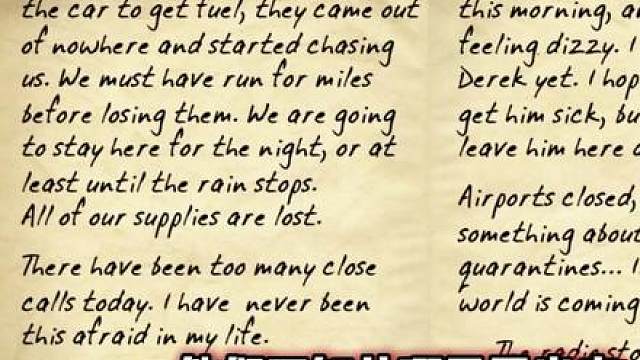 the car to get fuel, they came out
of nowhere and started chasing
us. We must have run for miles
before losing them. We are going
to stay here for the night, or at
least until the rain stops.
All of our supplies are lost.
There have been too many close
calls today. I have never been
this afraid in my life.
this morning,
feeling dizzy. I
Derek yet. I
get him sick,
leave him here
Airports closed,
something about
quarantines...
world is coming
The radio